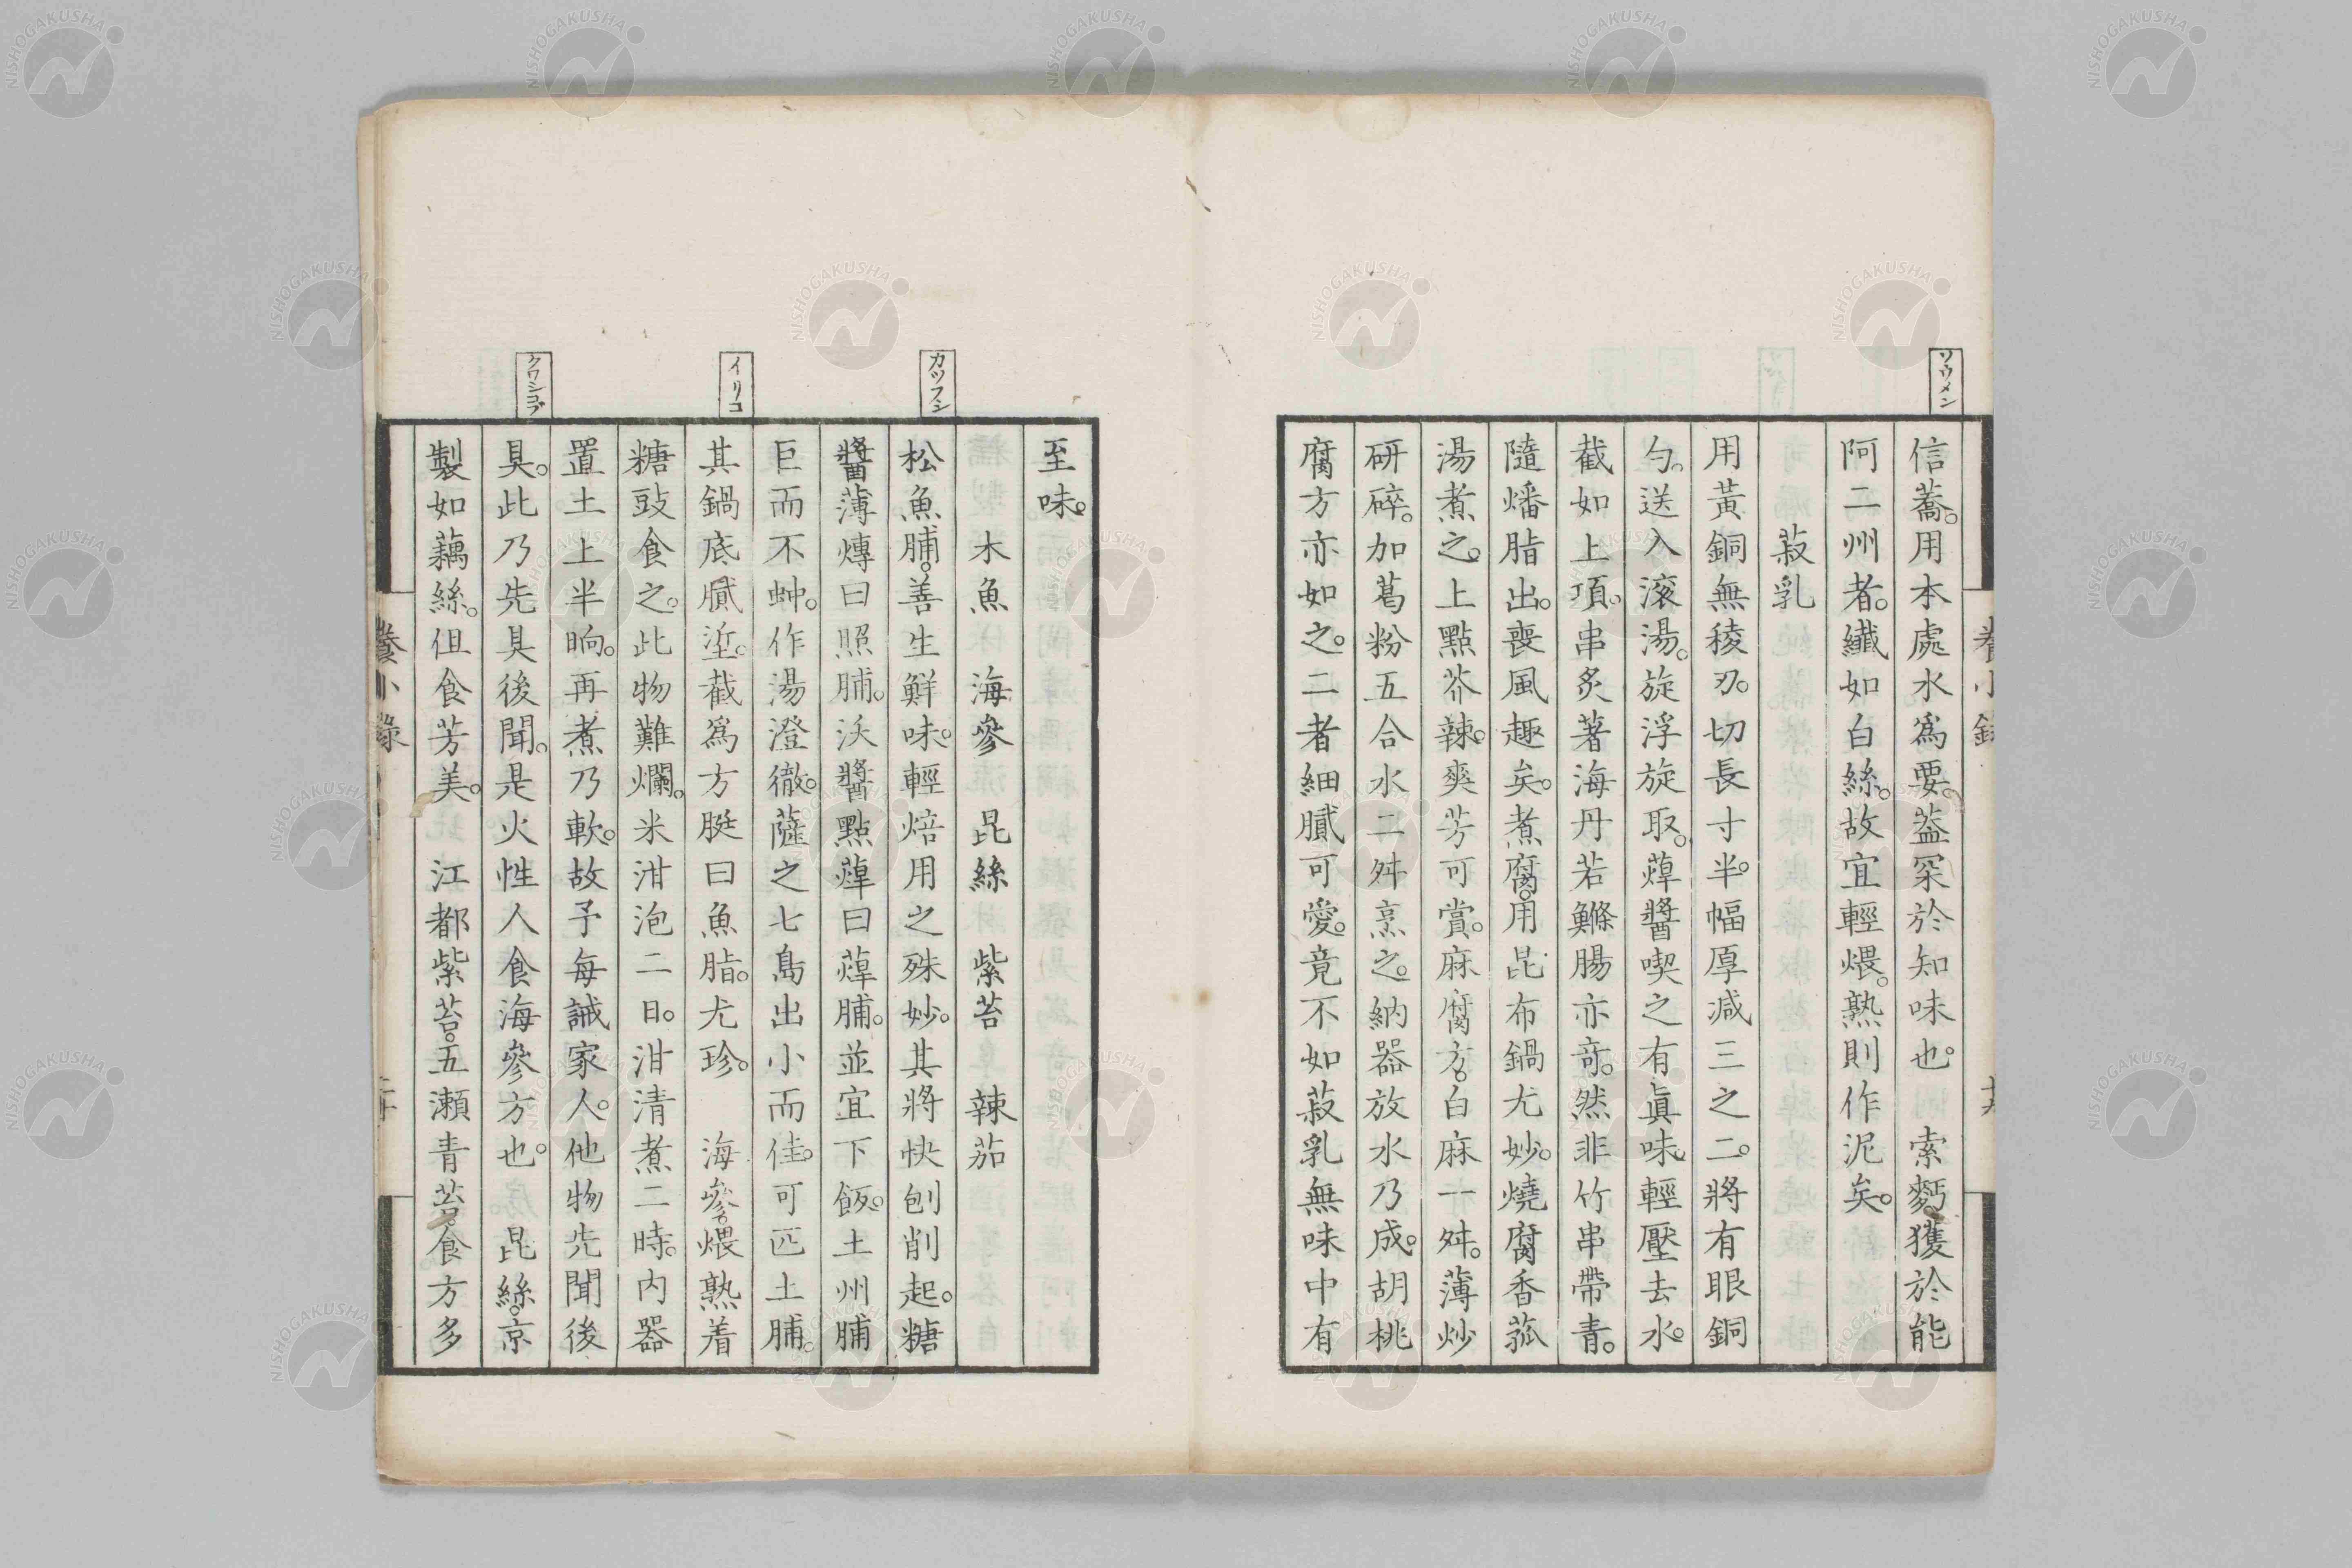 ソウメン
信蕎。用本處水爲要。葢罙於知味也。　索麪獲於能
阿二州者。纖如白絲。故宜輕煨。熟則作泥矣。
菽乳
用黃銅無稜刃。切長寸半。幅厚減三之二。將有眼銅
勺。送入滚湯。旋浮旋取。蘸醬喫之有眞味。輕壓去水。
截如上項。串炙著海丹若鰷腸亦竒。然非竹串帶青。
隨燔脂出。喪風趣矣。煮腐。用昆布鍋尤妙。燒腐香菰
湯煮之。上點芥辣。爽芳可賞。麻腐方。白麻一舛。薄炒
研碎。加葛粉五合水二舛烹之。納器放水乃成。胡桃
腐方亦如之。二者細膩可愛。竟不如菽乳無味中有
養小錄
カツフシ
イリコ
クワシコブ
至味。
木魚　海參　昆絲　紫苔　辣茄
松魚脯。善生鮮味。輕焙用之殊妙。其將快刨削起。糖
醬薄煿曰照脯。沃醬點蘸曰蘸脯。並宜下飯。土州脯
巨而不蚛。作湯澄徹。薩之七島出小而佳。可匹土脯。
其鍋底膩坙。截爲方脡曰魚脂。尤珍。　海參。煨熟着
糖豉食之。此物難爛。米泔泡二日。泔清煮二時。内器
置土上半晌。再煮乃軟。故予每誡家人。他物先聞後
具。此乃先具後聞。是火性人食海參方也。　昆絲。京
製如藕絲。但食芳美。　江都紫苔。五瀬青苔。食方多
養小錄